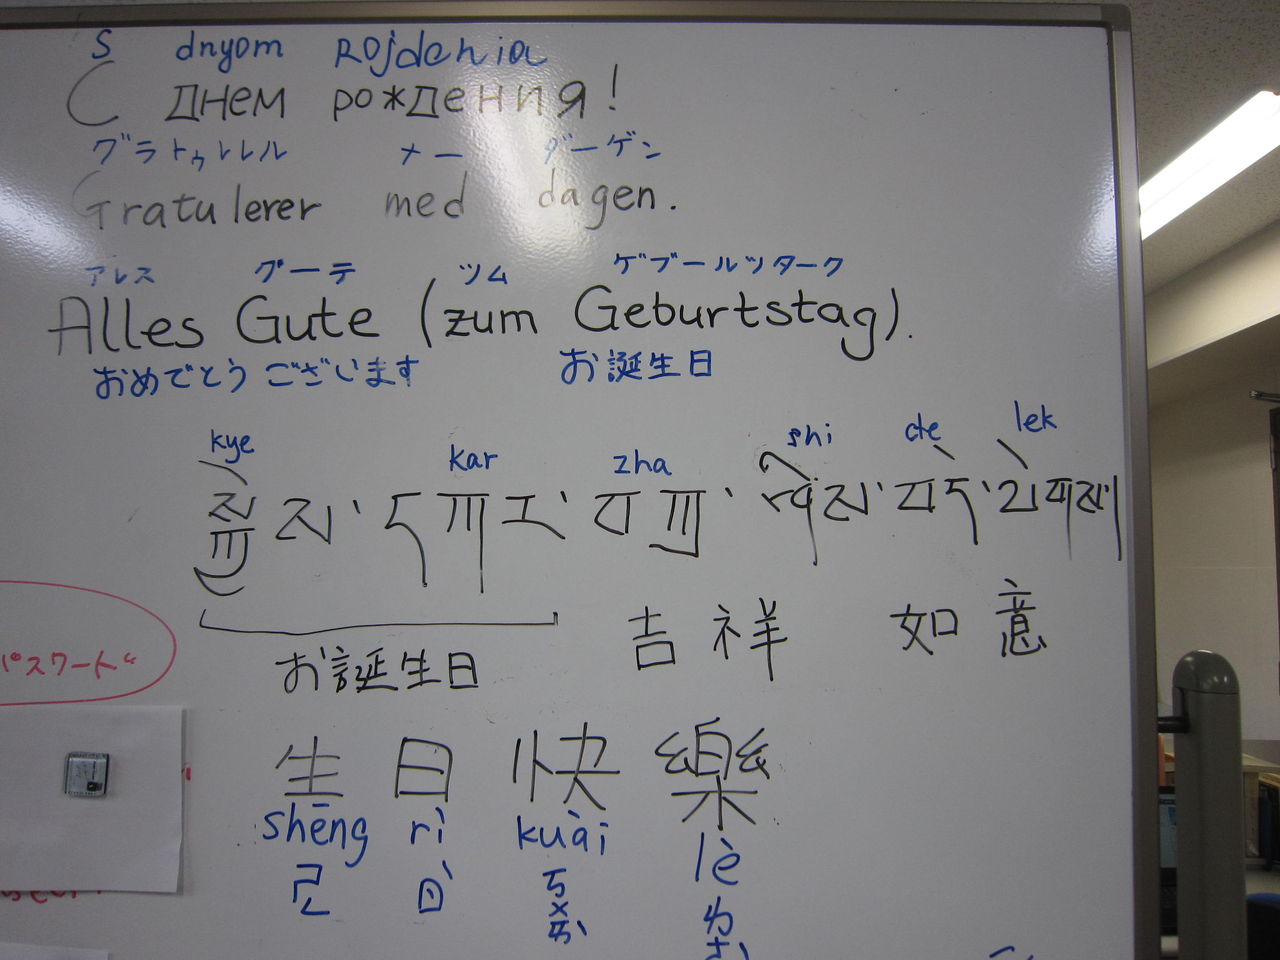 S dnyom Rojdenia
С днем рождения!
グラトゥレレル メー ダーゲン
Gratulerer med dagen.
アレス グーテ ツム ゲブールツターク
Alles Gute (zum Geburtstag).
おめでとう ございます お誕生日
kye kar zha shi de lek
སྐྱེས་དཀར་
吉祥 如意
お誕生日
パスワード
生日快樂
shēng rì kuài lè
ㄕㄥ ㄖˋ ㄎㄨㄞˋ ㄌㄜˋ